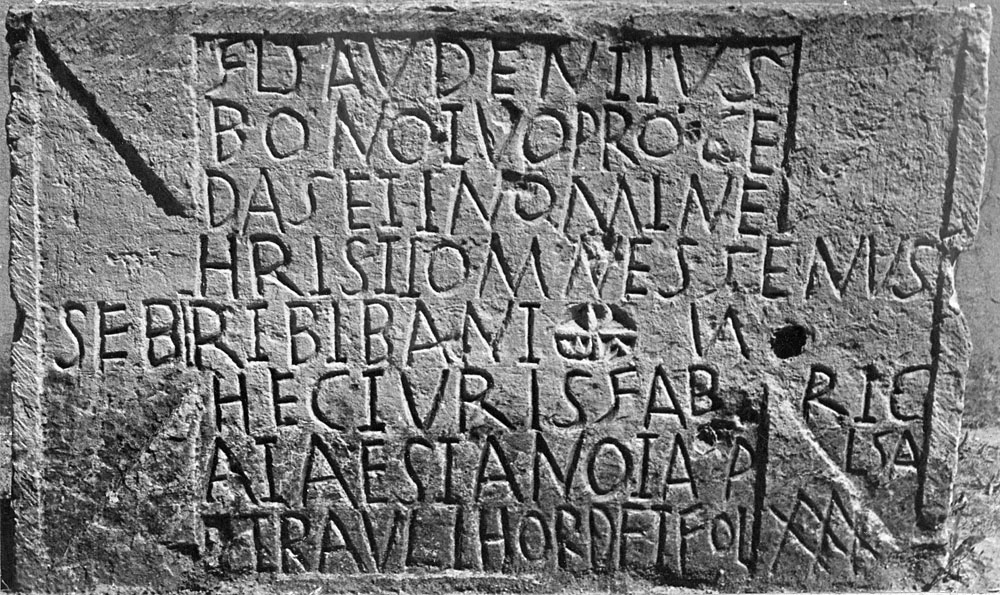 FLTAVDENTIVS
BONOTVOPROCE
DASETINOMINE
HRISTIOMNESTENVS
SEBRIBIBANT ☧ TA
HECTVRISFABRIC
ATAESTANOTA P LSA
TRAVLI HORDETFOL XXX